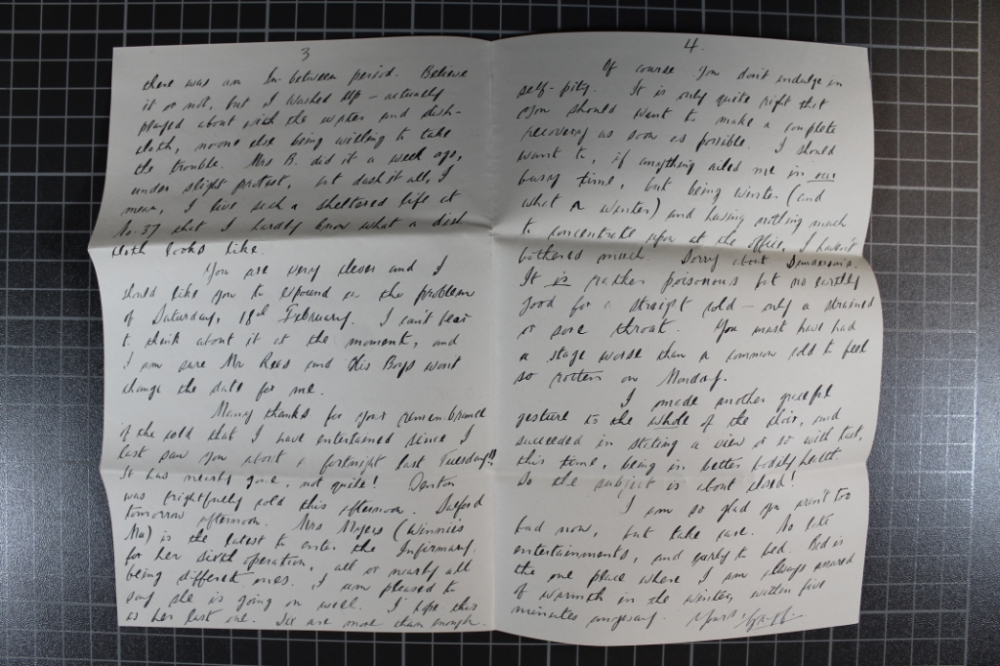 3
there was an In-between period. Believe
it or not, but I Washed Up - actually
played about with the water and dish-
cloth, no one else being willing to take
the trouble. Mrs B. did it a week ago,
under slight protest, but dash it all, I
mean, I live such a sheltered life at
No. 37 that I hardly know what a dish
cloth looks like.
You are very clever and I
should like you to expound on the problem
of Saturday, 18th February. I can't bear
to think about it at the moment, and
I am sure Mr Rees and His Boys won't
change the date for me.
Many thanks for your remembrance
of the cold that I have entertained since I
last saw you about a fortnight last Tuesday!!
It has nearly gone, not quite! Denton
was frightfully cold this afternoon. Salford
tomorrow afternoon. Mrs Myers (Winnie's
Ma) is the latest to enter the Infirmary,
for her sixth operation, all or nearly all
being different ones. I am pleased to
say she is going on well. I hope this
is her last one. Six are more than enough.
4.
Of course you don't indulge in
self-pity. It is only quite right that
you should want to make a complete
recovery as soon as possible. I should
want to, if anything ailed me in our
busy time, but being Winter (and
what a winter) and having nothing much
to concentrate upon at the office, I haven't
bothered much. Sorry about
It is rather poisonous but no earthly
good for a straight cold - only a strained
or sore throat. You must have had
a stage worse than a common cold to feel
so rotten on Monday.
I made another graceful
gesture to the whole of the choir, and
succeeded in stating a view or so with tact,
this time, being in better bodily health
So the subject is about closed!
I am so glad you aren't too
bad now, but take care. No late
entertainments, and early to bed. Bed is
the one place where I am always assured
of warmth in the Winter, within five
minutes anyway. Yours,